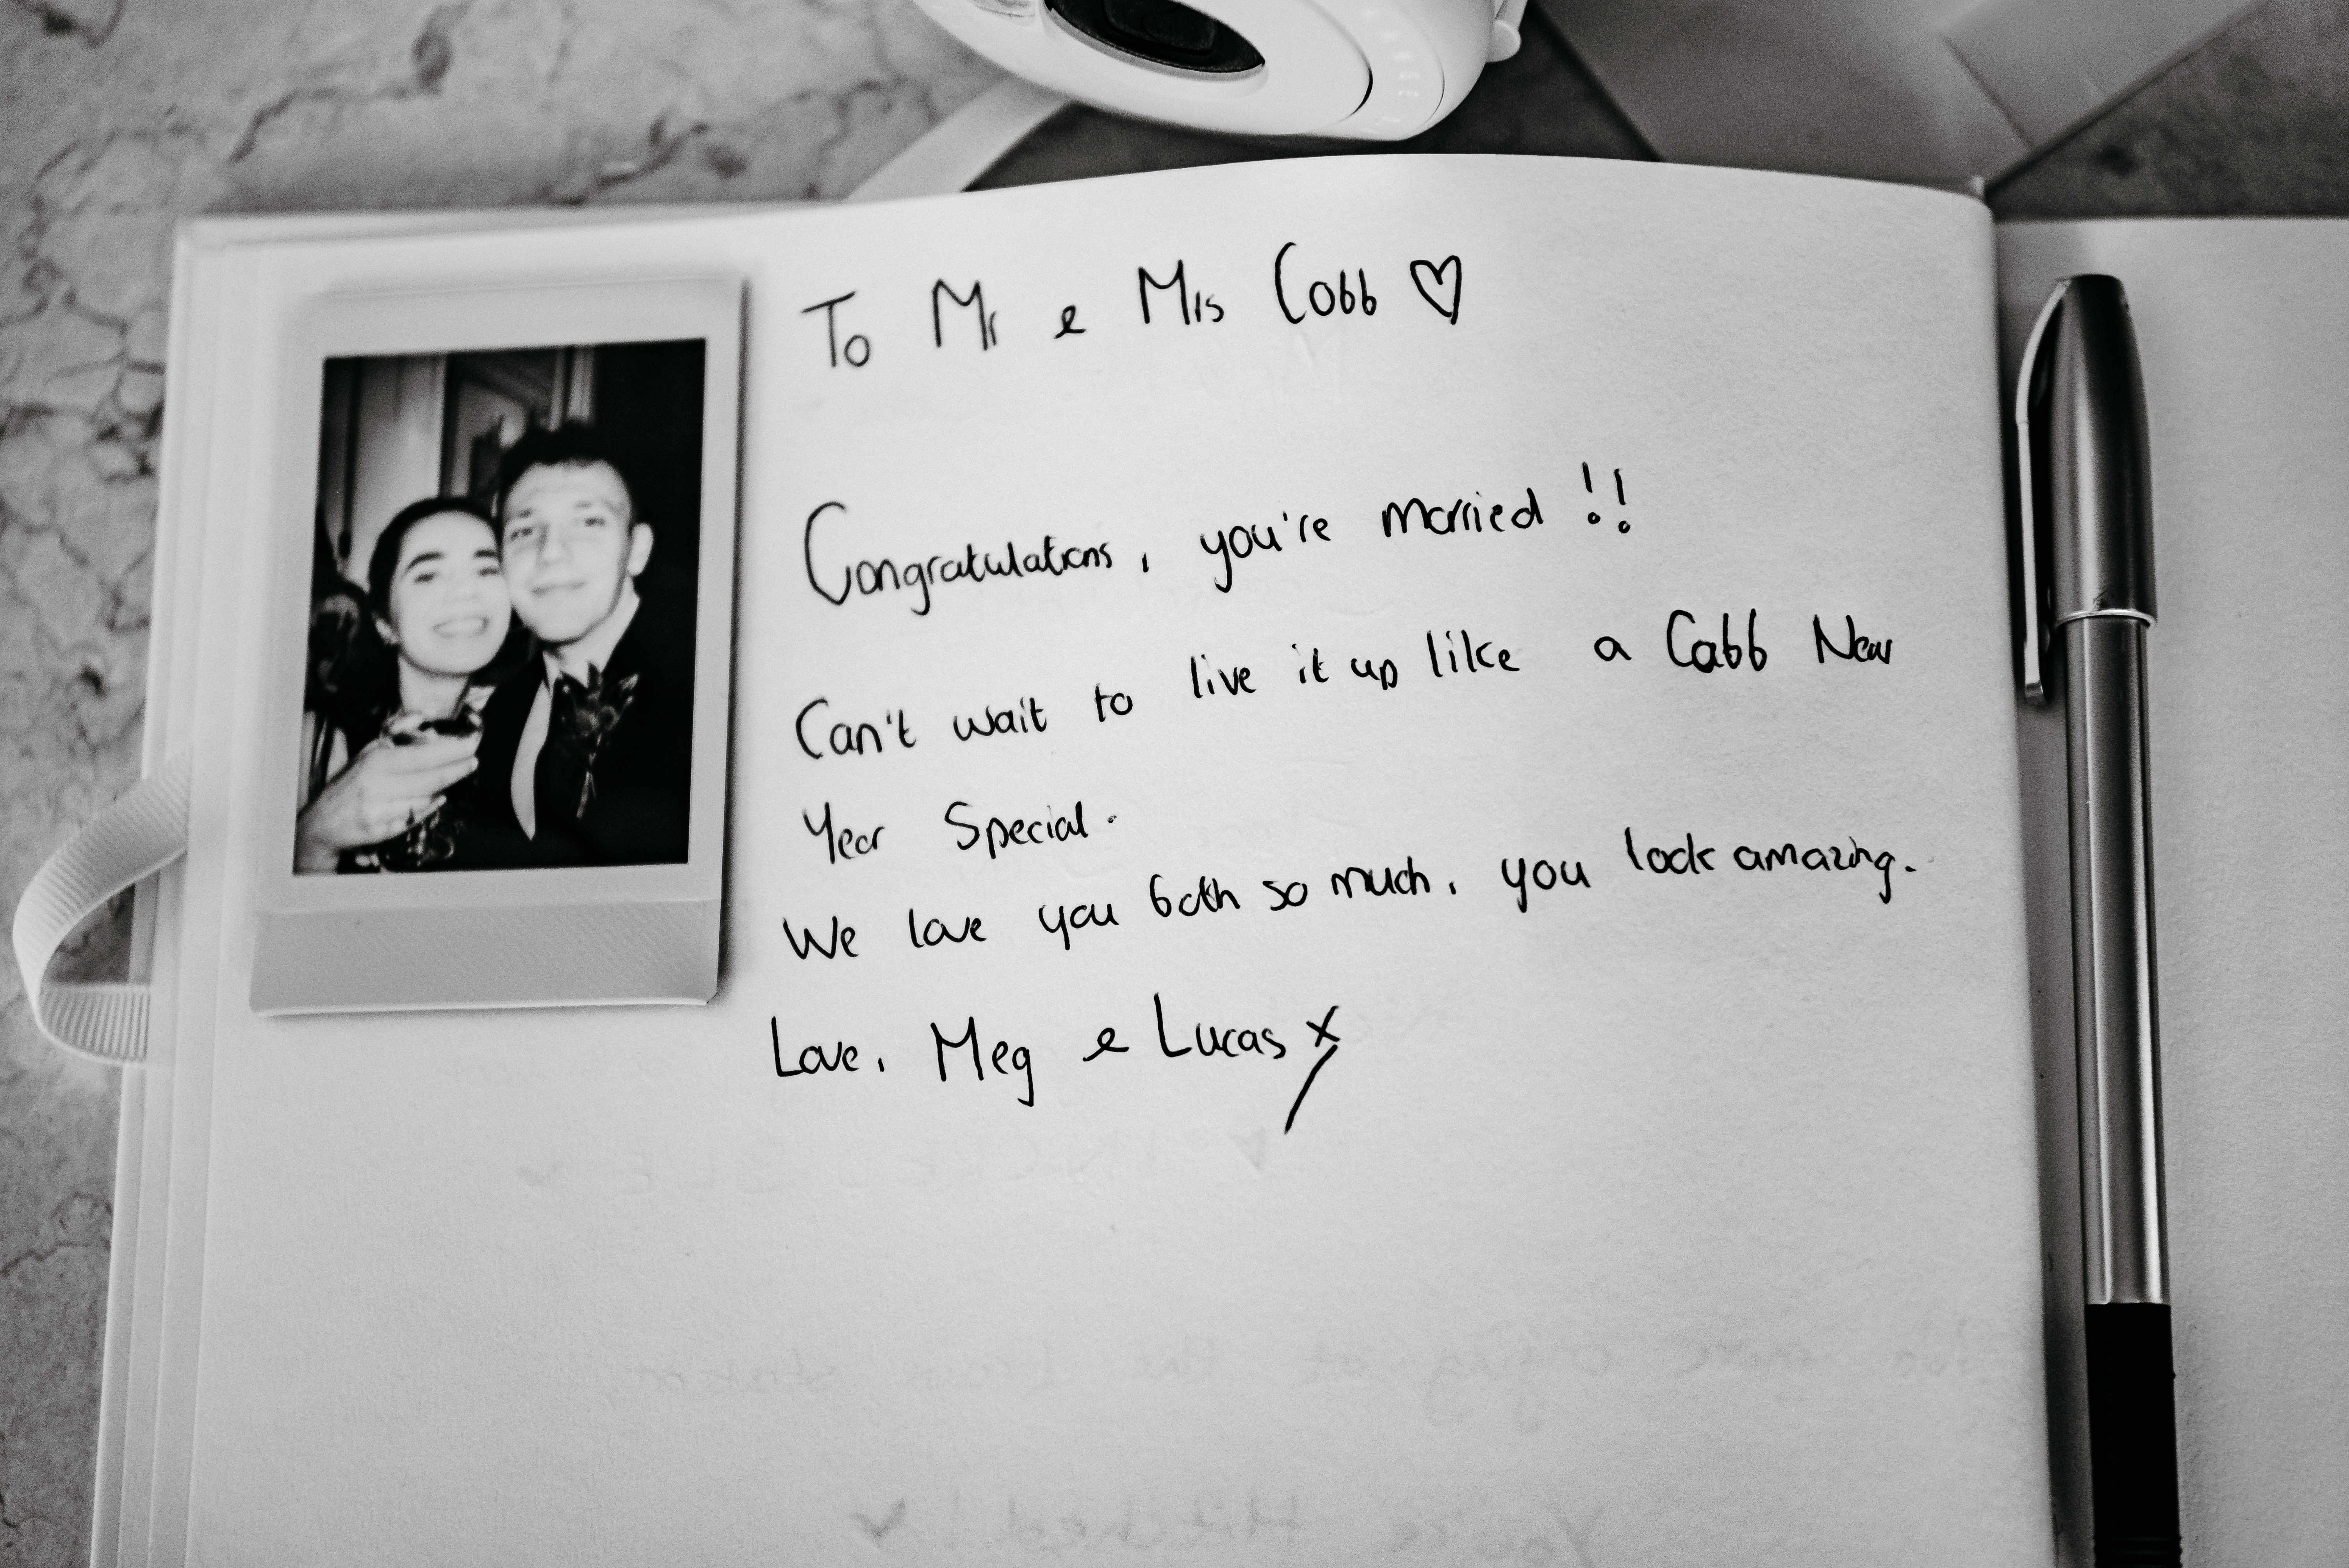 To Mr & Mrs Cobb ♡
Congratulations, you're married !!
Can't wait to live it up like a Cobb New
Year Special.
We love you both so much, you look amazing.
Love, Meg & Lucas x
You're Hitched!! ♥